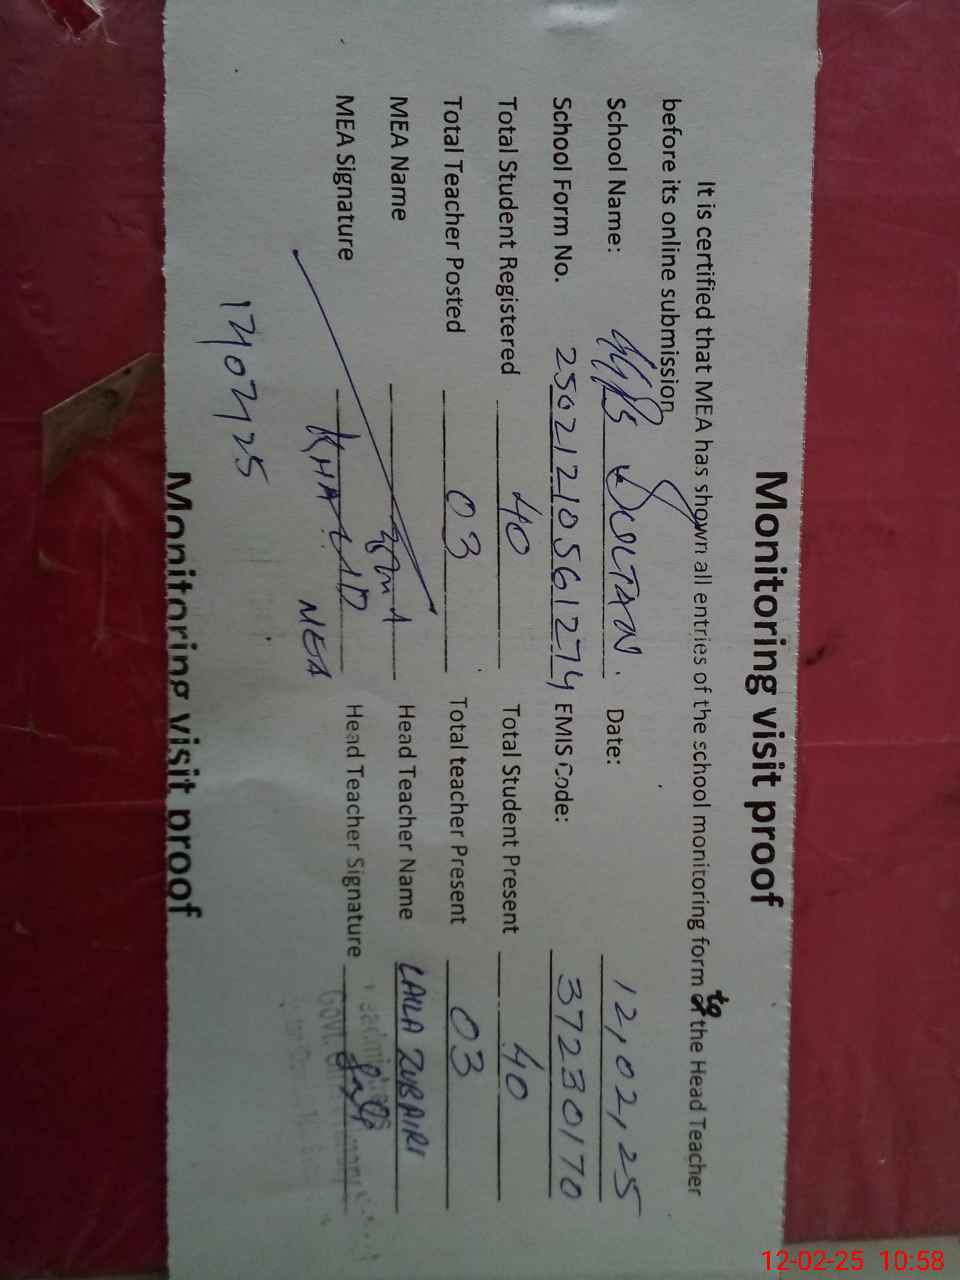 Monitoring visit proof
It is certified that MEA has shown all entries of the school monitoring form to the Head Teacher
before its online submission
School Name: SULTAN. Date: 12,02,25
School Form No. 25021210561274 EMIS Code: 37230170
Total Student Registered 40 Total Student Present 40
Total Teacher Posted 03 Total teacher Present 03
MEA Name Head Teacher Name LAILA ZUBAIRI
MEA Signature KHALID Head Teacher Signature
MEA
GOVT.
Monitoring visit proof
12-02-25 10:58